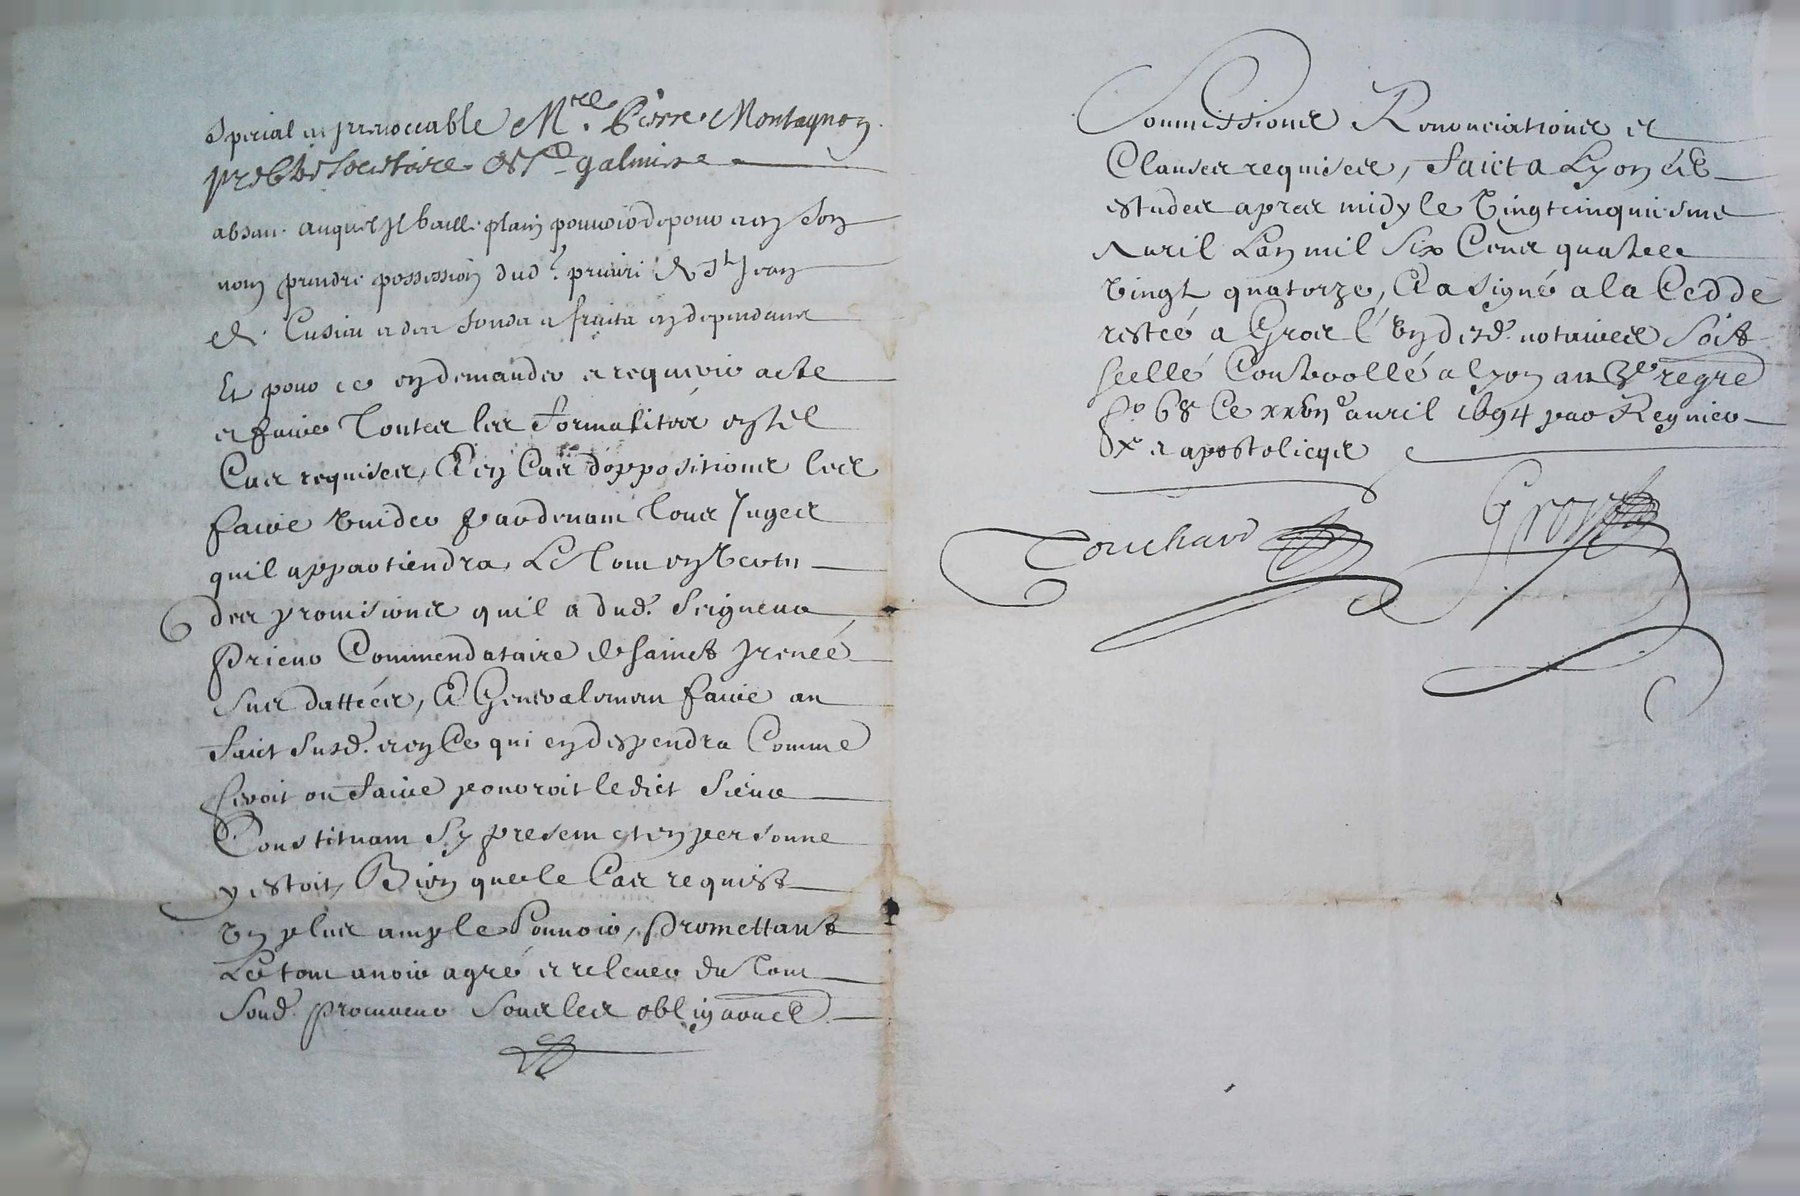 special et irrevocable Mre. Pierre Montagnon
prebtre societaire de St galmier
absent auquel Il baille plain pouvoir de pour et en son
nom prendre possession dud. prieuré de St Jean
de Cusieu et des fonds et fruits en dependans
Et pour ce en demander et requerir acte
et faire Toutes les formalités en tel
Cas requises, Et en Cas d'oppositions les
faire vuider pardevant tous Juges
quil appartiendra Le Tout en vertu
des provisions quil a dud. Seigneur
Prieur Commendataire de sainct Irenée
sus dattées, Et Generalement faire au
faict susd. et en Ce qui en despendra Comme
feroit ou faire pourroit ledict sieur
Constituant sy present et en personne
y estoit, Bien que le Cas requist
un plus ample Pouvoir, Promettant
Le tout avoir agré et relever du Tout
sond. procureur sous les obligaons
Soumissions Renonciations et
Clauses requises, faict a Lyon ez
estudes apres midy le vingtcinquiesme
Avril Lan mil six Cens quatre
vingt quatorze, Et a signé a la Cedde
restée a Gros l'un desd. notaires soit
scellé Controollé a lyon au 3e regre
fo 68 Ce xxvije avril 1694 par Regnier
et apostolicqs
Touchard
Gros